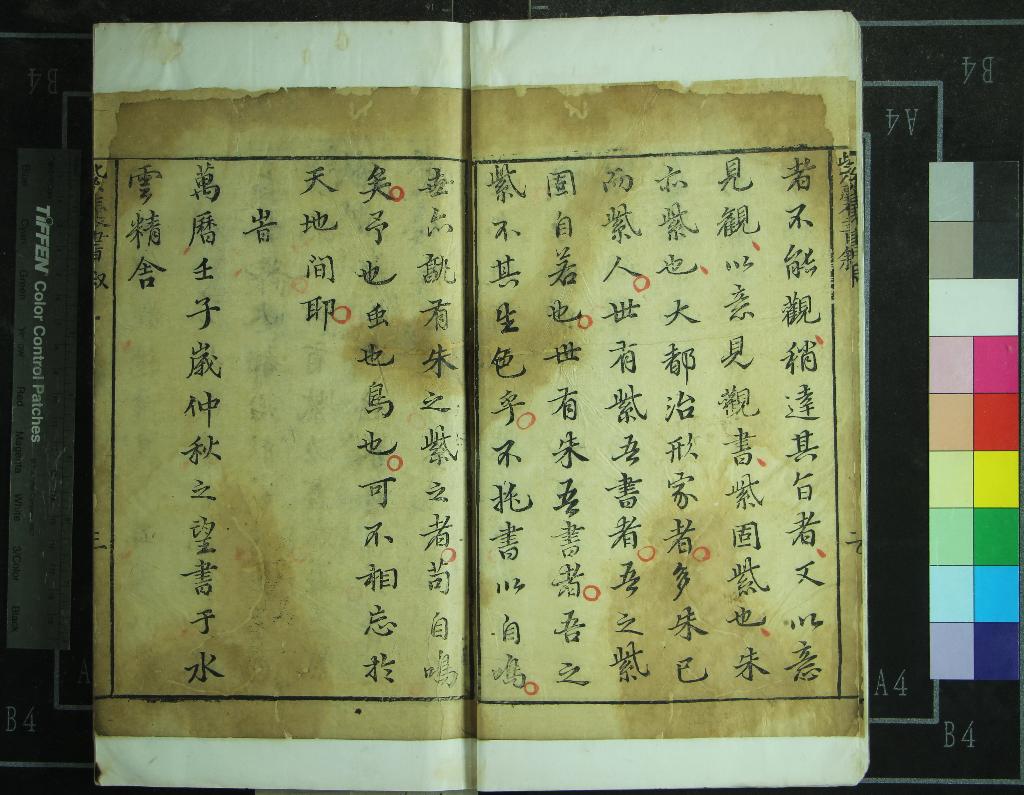 者不能觀稍達其旨者又以意
見觀以意見觀書紫固紫也朱
亦紫也大都治形家者多朱已
而紫人世有紫吾書者吾之紫
固自若也世有朱吾書者吾之
紫不其生色乎不扥書以自鳴
矣予也虫也鳥也可不相忘於
天地间耶
旹
萬曆壬子歲仲秋之望書于水
雲精舍
二
三
TIFFEN Color Control Patches
B4
A4
A4
B4
B4